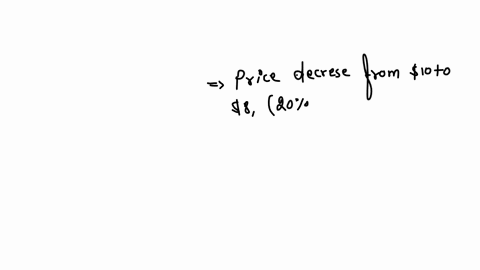 => Price decrese from $10 to
$8, (20%